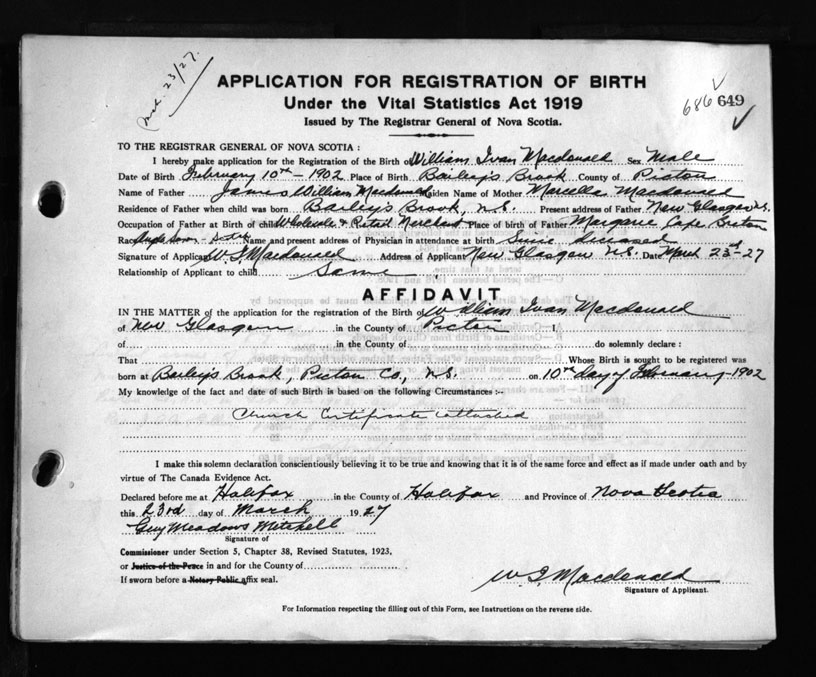 Mch. 23/27.
APPLICATION FOR REGISTRATION OF BIRTH
Under the Vital Statistics Act 1919
686 649
Issued by The Registrar General of Nova Scotia.
TO THE REGISTRAR GENERAL OF NOVA SCOTIA:
I hereby make application for the Registration of the Birth of William Ivan Macdonald Sex Male
Date of Birth February 10th - 1902 Place of Birth Bailey's Brook County of Pictou
Name of Father James William Macdonald Maiden Name of Mother Marcella Macdonald
Residence of Father when child was born Bailey's Brook, N.S. Present address of Father New Glasgow N.S.
Occupation of Father at Birth of child Wholesale & Retail Merchant Place of birth of Father Margaree Cape Breton
Race Name and present address of Physician in attendance at birth Since deceased
Signature of Applicant W I Macdonald Address of Applicant New Glasgow N.S. Date March 23rd - 27
Relationship of Applicant to child Same
AFFIDAVIT
IN THE MATTER of the application for the registration of the Birth of William Ivan Macdonald
of New Glasgow in the County of Pictou I.
of in the County of do solemnly declare :
That Whose Birth is sought to be registered was
born at Bailey's Brook, Pictou Co., N.S. on 10th day of February - 1902
My knowledge of the fact and date of such Birth is based on the following Circumstances :-
Church Certificate attached
I make this solemn declaration conscientiously believing it to be true and knowing that it is of the same force and effect as if made under oath and by
virtue of The Canada Evidence Act.
Declared before me at Halifax in the County of Halifax and Province of Nova Scotia
this 23rd day of March 1927
Guy Meadows Mitchell
Signature of
Commissioner under Section 5, Chapter 38, Revised Statutes, 1923,
or Justice of the Peace in and for the County of
If sworn before a Notary Public affix seal.
W I Macdonald
Signature of Applicant.
For Information respecting the filling out of this Form, see Instructions on the reverse side.